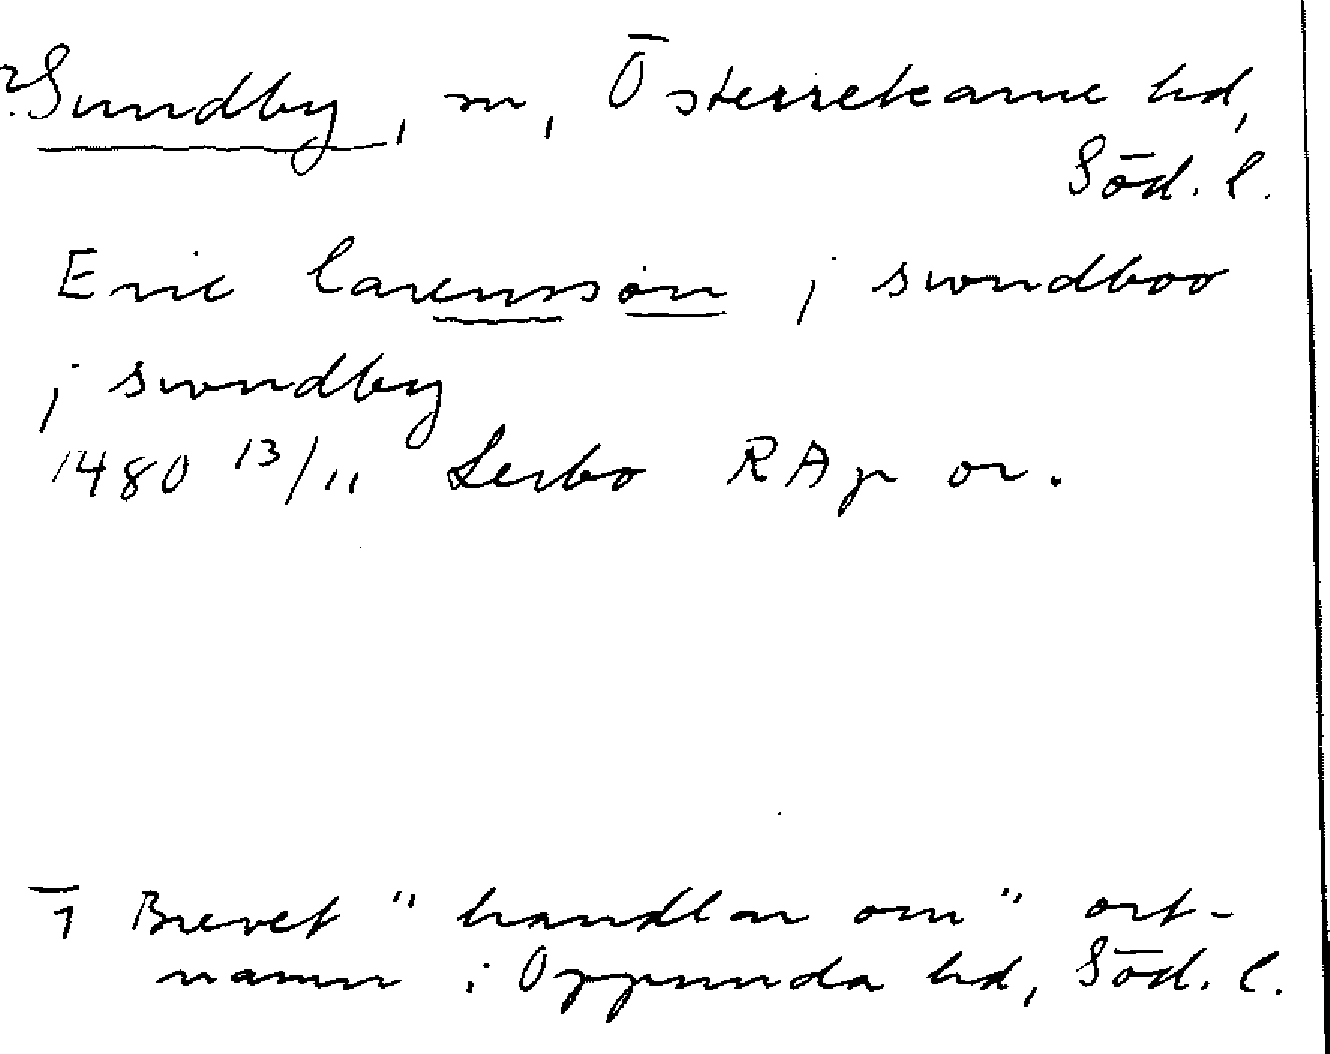 ?Sundby, sn, Österrekarne hd,
Söd. l.
Eric larensson j swndboo
j swndby
1480 13/11 Lerbo RAp or.
1 Brevet "handlar om" ort-
namn i Oppunda hd, Söd. l.